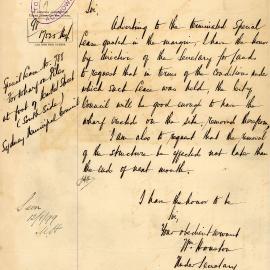 Sir,
Adverting to the terminated Special
Lease quoted in the margin, I have the honor
by direction of the Secretary for Lands
to request that in terms of the Conditions under
which such Lease was held, the City
Council will be good enough to have the
wharf erected on the site, removed therefrom.
I am also to request that the removal
of the structure be effected not later than
the end of next month.
I have the honor to be
Sir,
Your obedient servant
Wm Houston
Under Secretary
Special Lease No.
for wharf
at foot of Street
(South Side)
Sydney Municipal Council
Seen